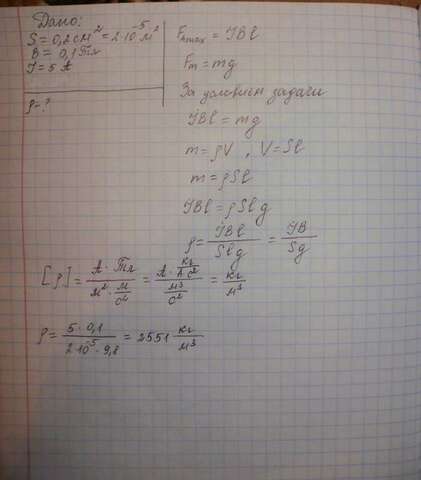 Дано:
S = 0,2 см² = 2·10⁻⁵ м²
B = 0,1 Тл
I = 5 А
ρ = ?
F_Amax = IBl
Fт = mg
За условием задачи
IBl = mg
m = ρV , V = Sl
m = ρSl
IBl = ρSlg
ρ = IBl / Slg = IB / Sg
[ρ] = А·Тл / м²·м/с² = А·кг/А·с² / м³/с² = кг/м³
ρ = 5·0,1 / 2·10⁻⁵·9,8 = 2551 кг/м³